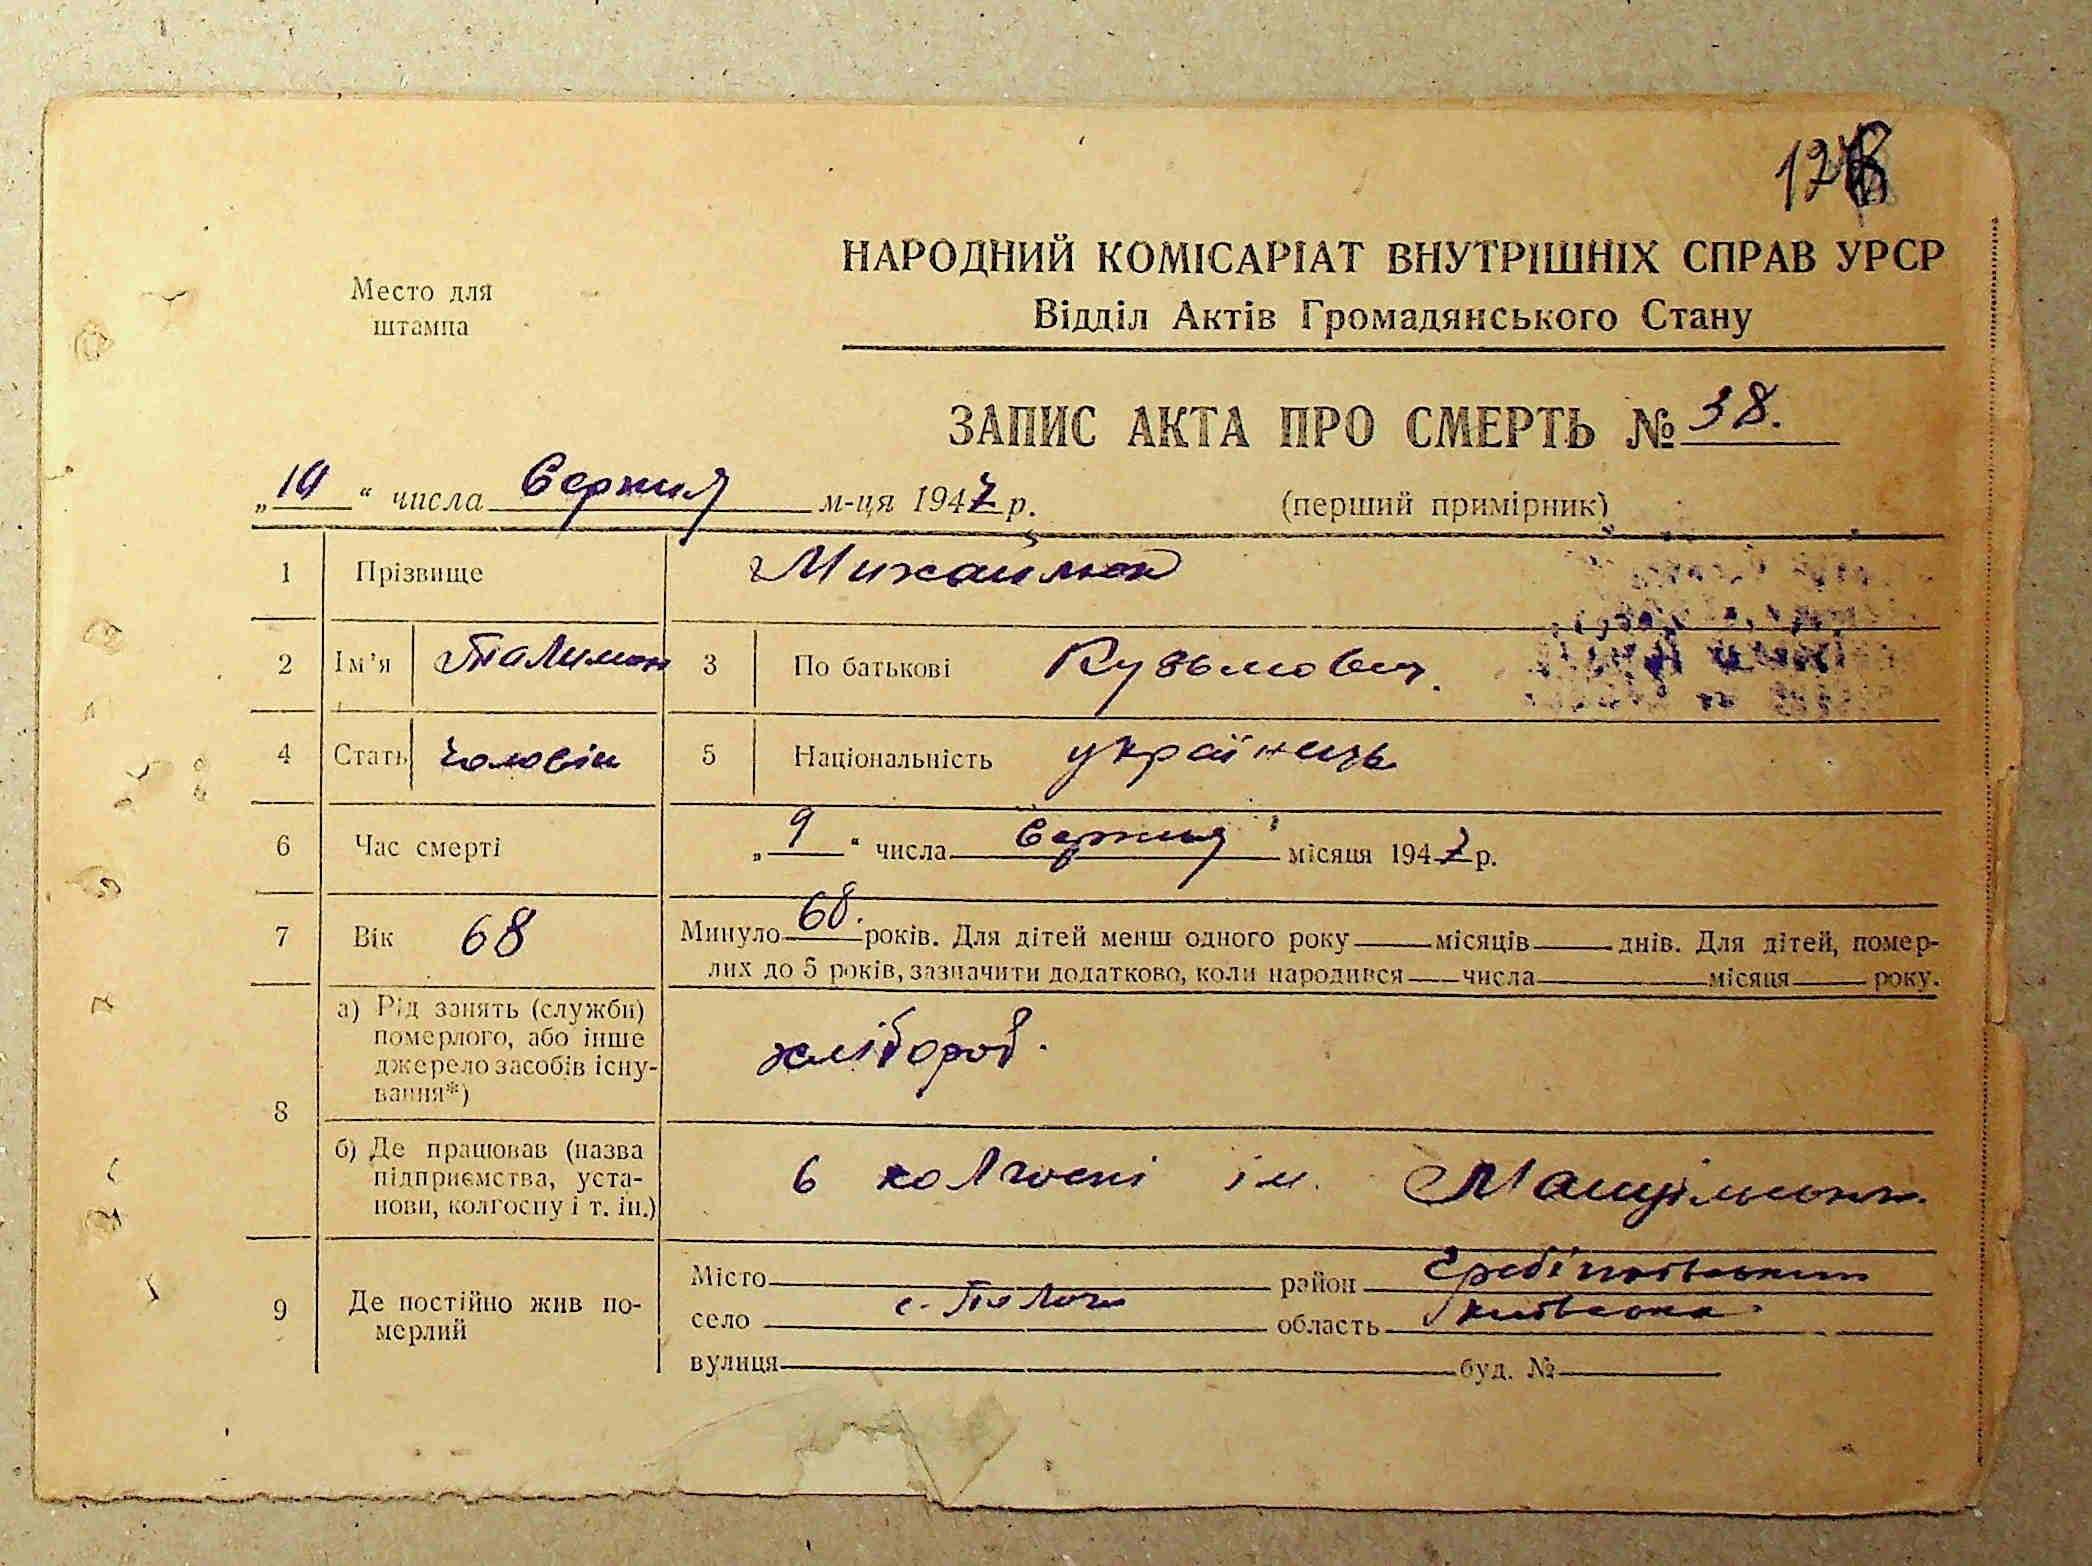 НАРОДНИЙ КОМІСАРІАТ ВНУТРІШНІХ СПРАВ УРСР
Место для
штампа
Відділ Актів Громадянського Стану
ЗАПИС АКТА ПРО СМЕРТЬ № 38.
„10“ числа Серпня м-ця 1947 р. (перший примірник)
1 Прізвище Михайлюк
2 Ім'я Палимон 3 По батькові Кузьмович.
4 Стать чоловік 5 Національність українець
6 Час смерті „9“ числа Серпня місяця 1947 р.
7 Вік 68 Минуло 68. років. Для дітей менш одного року місяців днів. Для дітей, помер-
лих до 5 років, зазначити додатково, коли народився числа місяця року.
8 а) Рід занять (служби)
померлого, або інше
джерело засобів існу-
вання*)
хлібороб.
б) Де працював (назва
підприємства, уста-
нови, колгоспу і т. ін.)
в колгоспі ім.
9 Де постійно жив по-
мерлий
Місто район Гребінківський
село с. область Київська.
вулиця буд. №